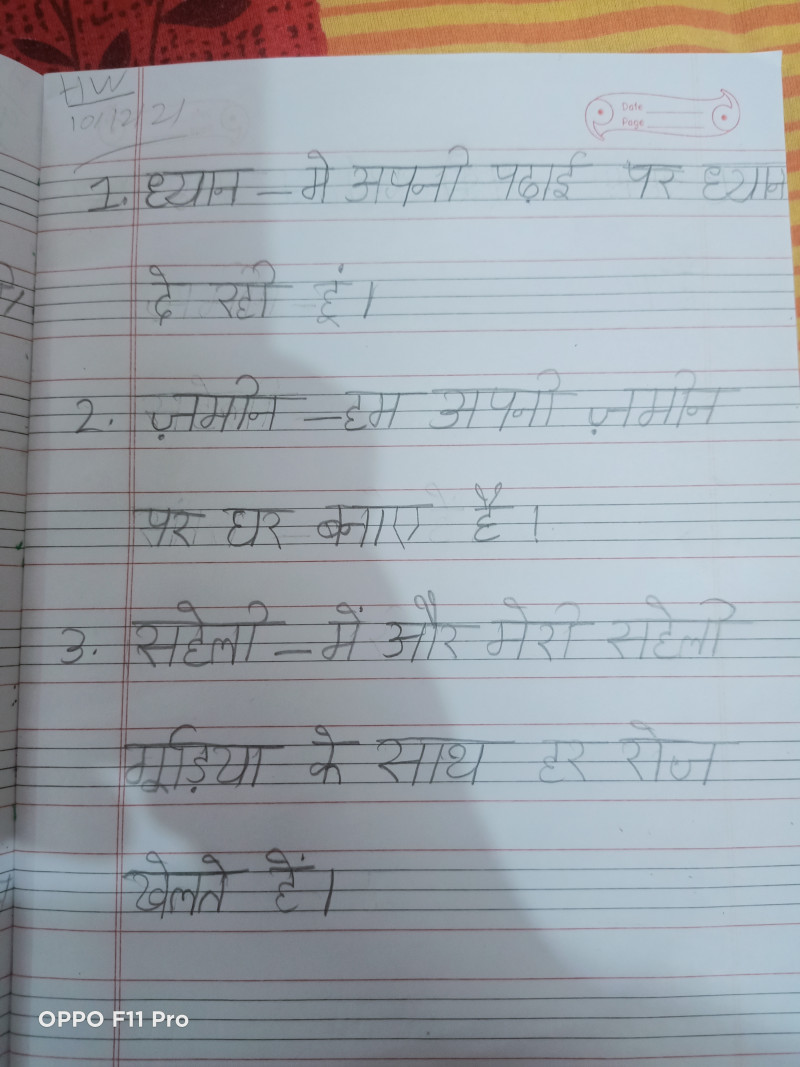 HW
10/12/21
Date
Page
1. ध्यान – मे अपनी पढाई पर ध्यान
दे रही हूं।
2. ज़मीन – हम अपनी ज़मीन
पर घर बनाए है।
3. सहेली – में और मेरी सहेली
गूड़िया के साथ हर रोज
खेलते हैं।
OPPO F11 Pro